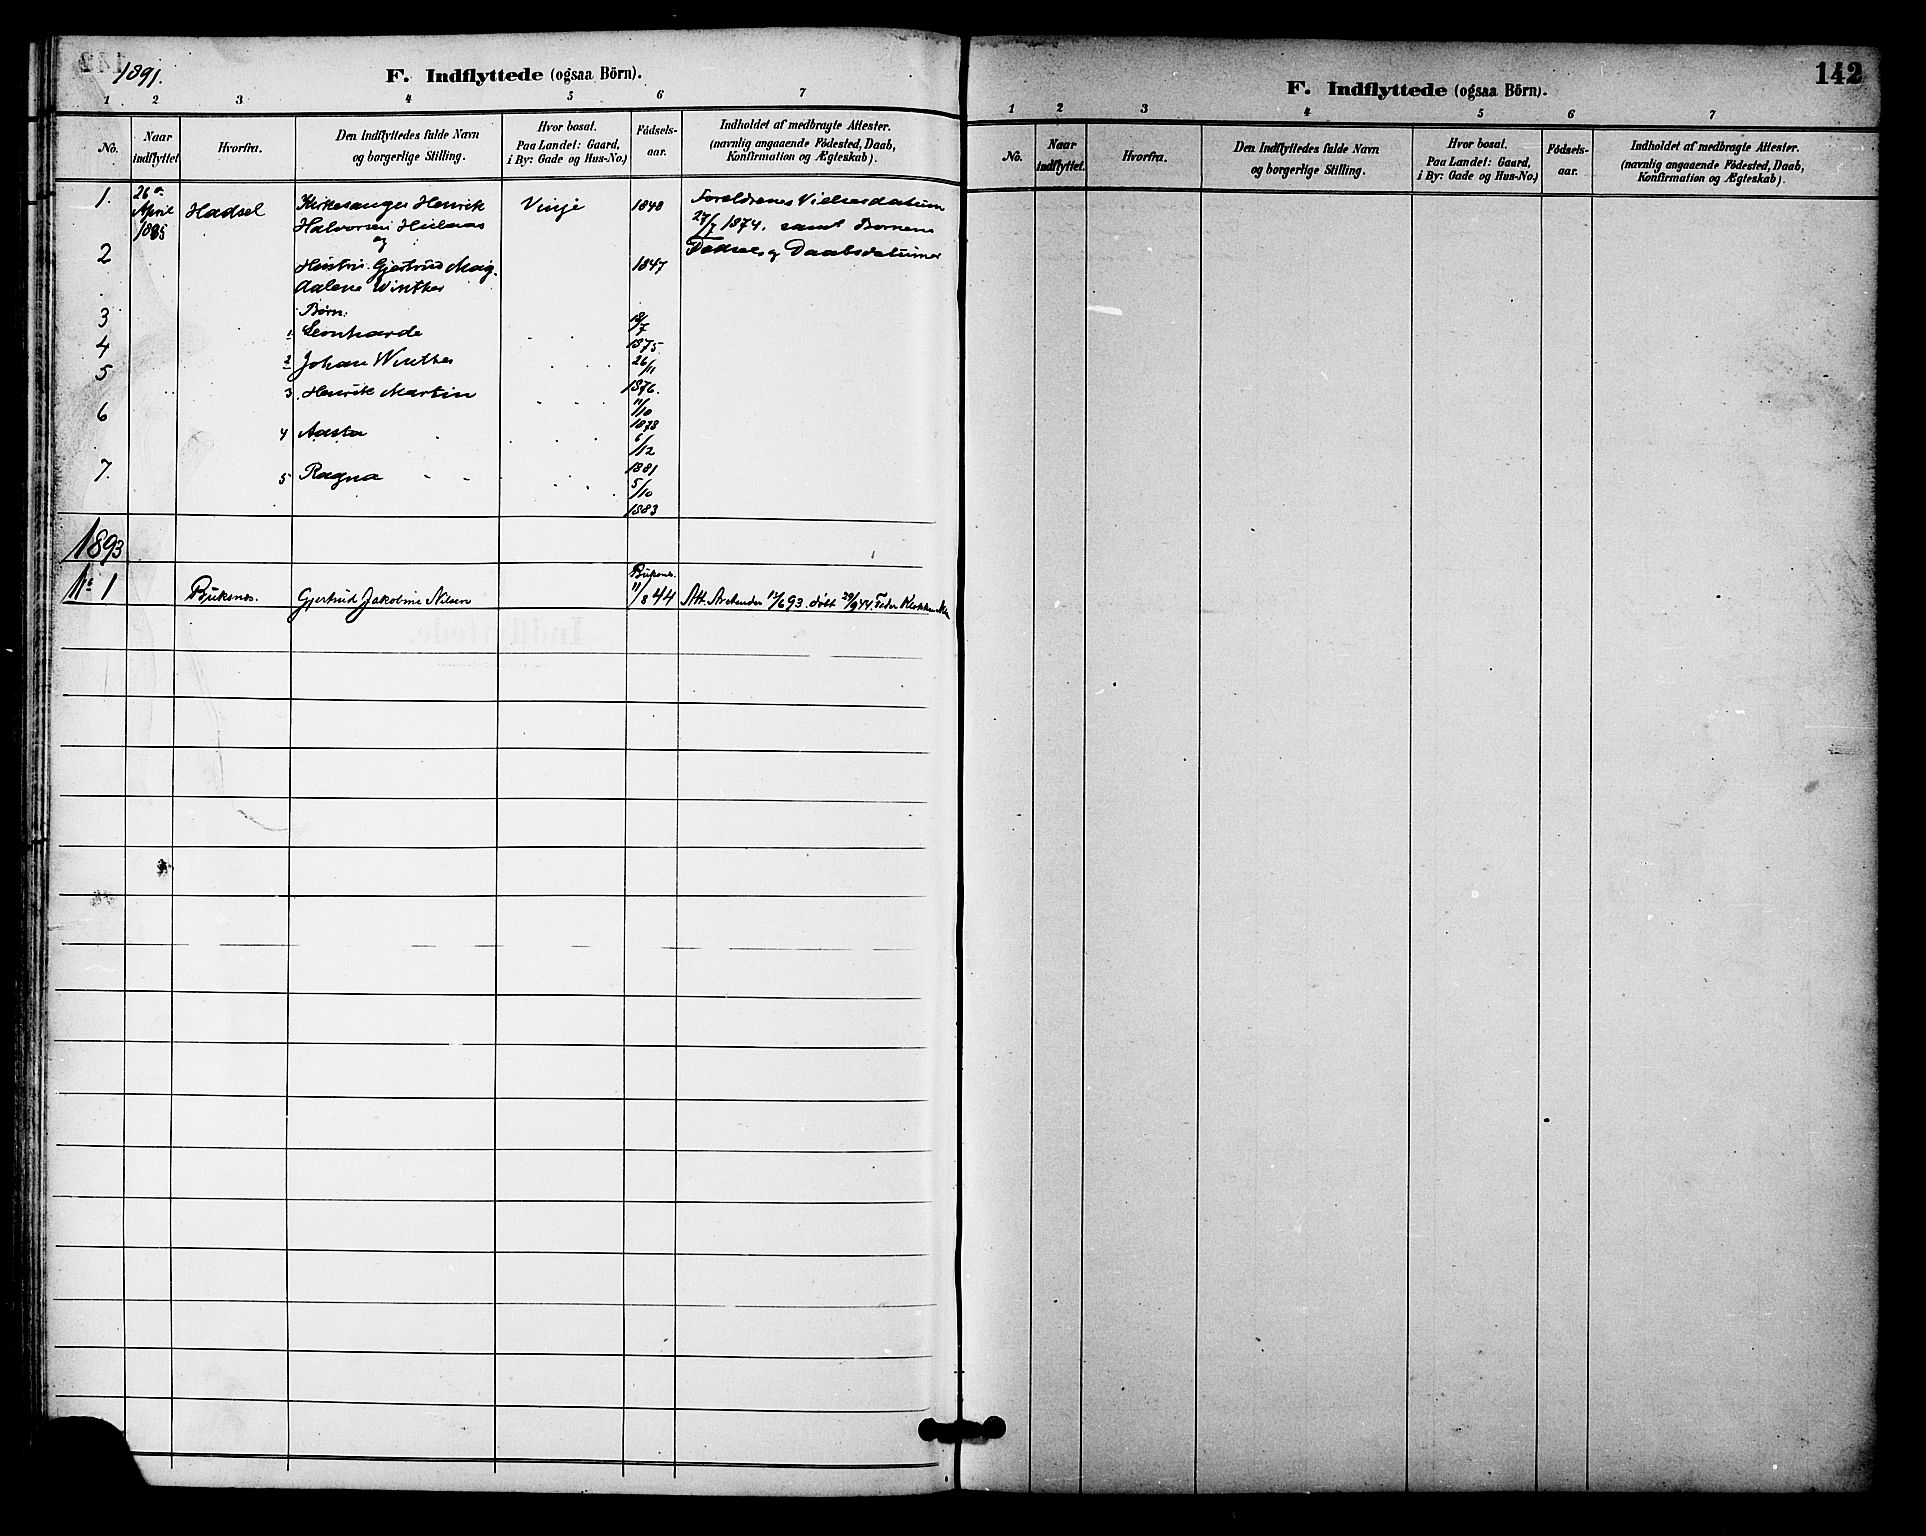 1891.
F. Indflyttede (ogsaa Börn).
1 2 3 4 5 6 7
No.
Naar indflyttet
Hvorfra.
Den Indflyttedes fulde Navn
og borgerlige Stilling.
Hvor bosat.
Paa Landet: Gaard,
i By: Gade og Hus-No.)
Födsels-
aar.
Indholdet af medbragte Attester.
(navnlig angaaende Födested, Daab,
Konfirmation og Ægteskab).
1. 26 April 1885 Hadsel Kirkesanger Henrik Vinje 1848 Forældrenes Vielsesdatum
Halvorsen 27/7 1874. samt Børnenes
og Fødsels og Daabsdatumer
2 Hustru Gjertrud Mag- 1847
dalene Winther
Børn:
3 1 Leonharde 18/7 1875
4 2 Johan Winther 26/11 1876.
5 3 Henrik Martin 11/10 1878
6 4 Aasta 6/12 1881
7. 5 Ragna 5/10 1883
1893
No 1 Buksnes. Gjertrud Jakobine Nilsen 11/8 44 Att. 12/6 93. døbt 29/9 44. Fader
142
F. Indflyttede (ogsaa Börn).
1 2 3 4 5 6 7
No.
Naar
indflyttet.
Hvorfra.
Den Indflyttedes fulde Navn
og borgerlige Stilling.
Hvor bosat.
Paa Landet: Gaard,
i By: Gade og Hus-No.)
Födsels-
aar.
Indholdet af medbragte Attester.
(navnlig angaaende Födested, Daab,
Konfirmation og Ægteskab).